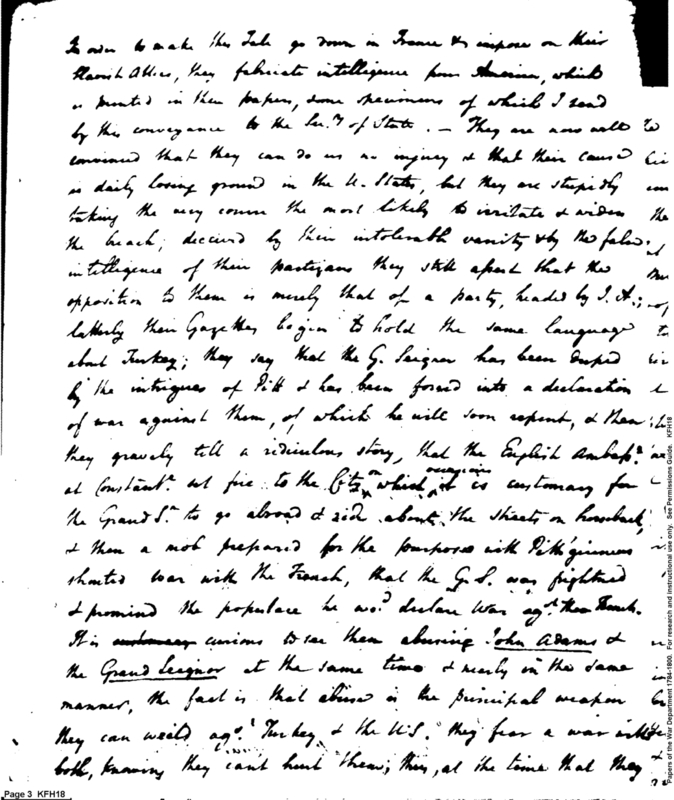 In order to make this Tale go down in France & impose on their
Slavish Allies, they fabricate intelligence from America, which
is printed in their papers, some specimens of which I send
by this conveyance to the Sec.ry of State. — They are now well
convinced that they can do us no injury & that their cause
is daily losing ground in the U. States, but they are stupidly
taking the very course the most likely to irritate & widen
the breach; deceived by their intolerable vanity & by the false
intelligence of their partizans they still assert that the
opposition to them is merely that of a party, headed by J. A.;
latterly their Gazettes begin to hold the same language
about Turkey; they say that the G. Seignor has been duped
by the intrigues of Pitt & has been forced into a declaration
of war against them, of which he will soon repent, & then
they gravely tell a ridiculous story, that the English Ambass.r
at Constant.e set fire to the City, on which occasion it is customary for
the Grand S.r to go abroad & ride about the streets on horseback,
& then a mob prepared for the purpose with Pitt's guineas
shouted war with the French, that the G. S. was frightned
& promised the populace he wo.d declare War ag.st the French.
It is customary curious to see them abusing John Adams &
the Grand Seignor at the same time & nearly in the same
manner, the fact is that abuse is the principal weapon
they can weild ag.st Turkey & the U.S. they fear a war with
both, knowing they can't hurt them; thus, at the time that they
Page 3 KFH18
Papers of the War Department 1784-1800. For research and instructional use only. See Permissions Guide. KFH18